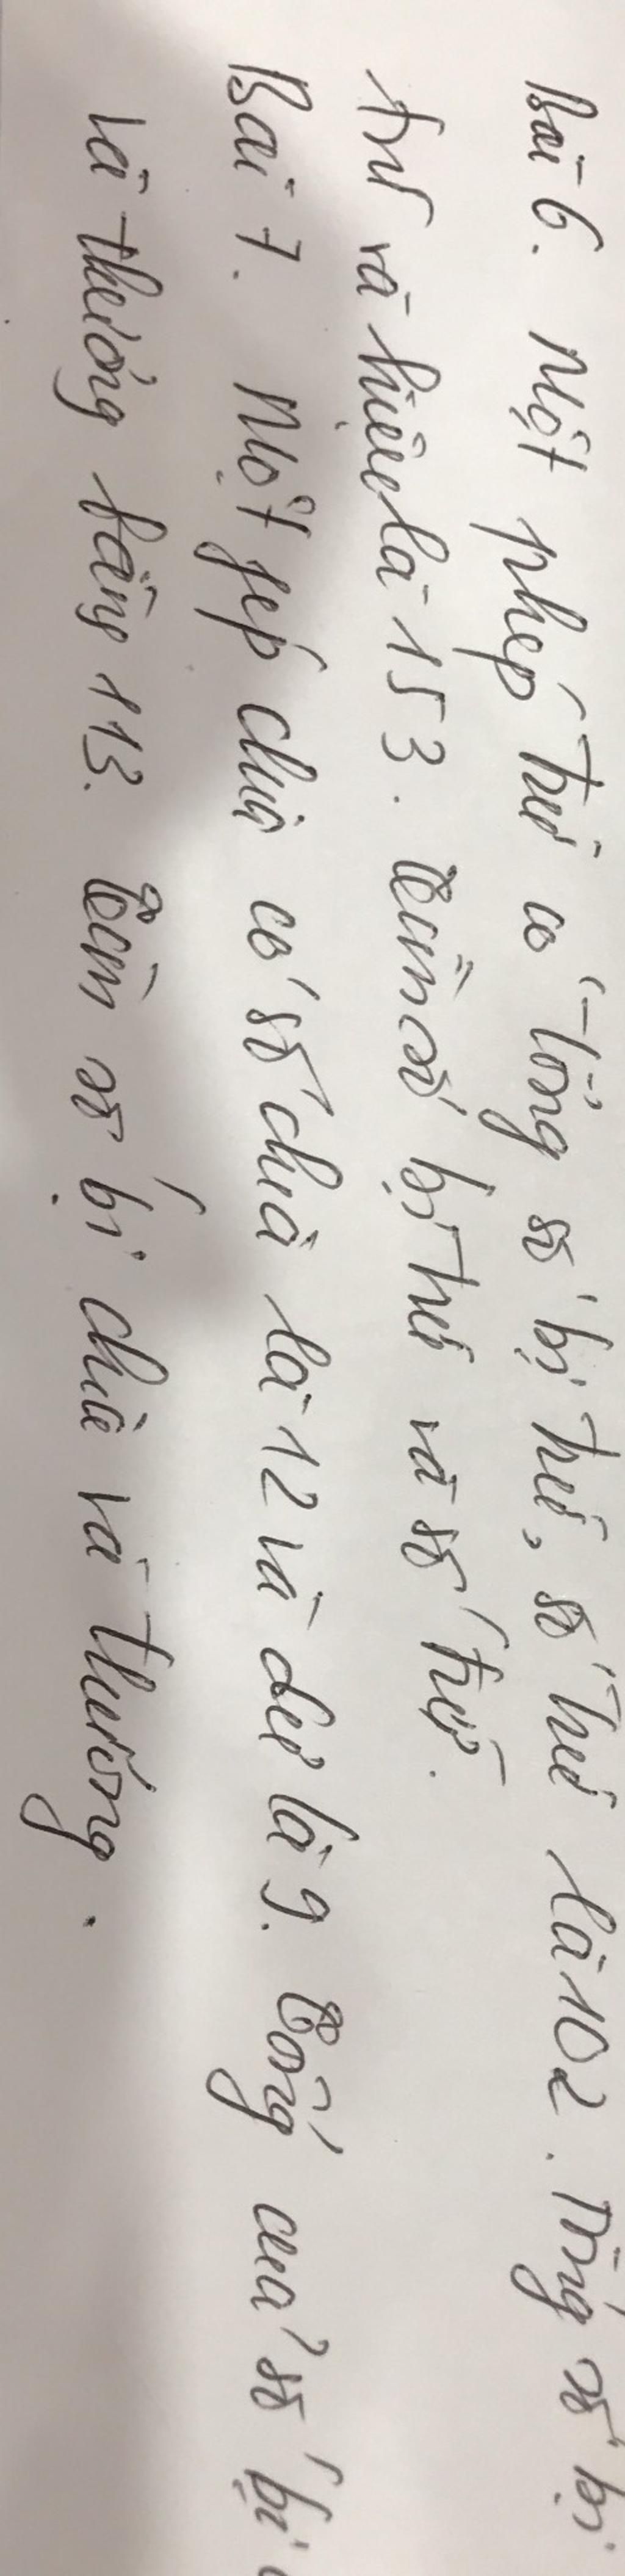 Bài 6. Một phép trừ có tổng số bị trừ, số trừ là 102. Tổng số bị
trừ và hiệu là 153. Tìm số bị trừ và số trừ.
Bài 7. Một phép chia có số chia là 12 và dư là 9. Tổng của số bị
và thương bằng 113. Tìm số bị chia và thương.